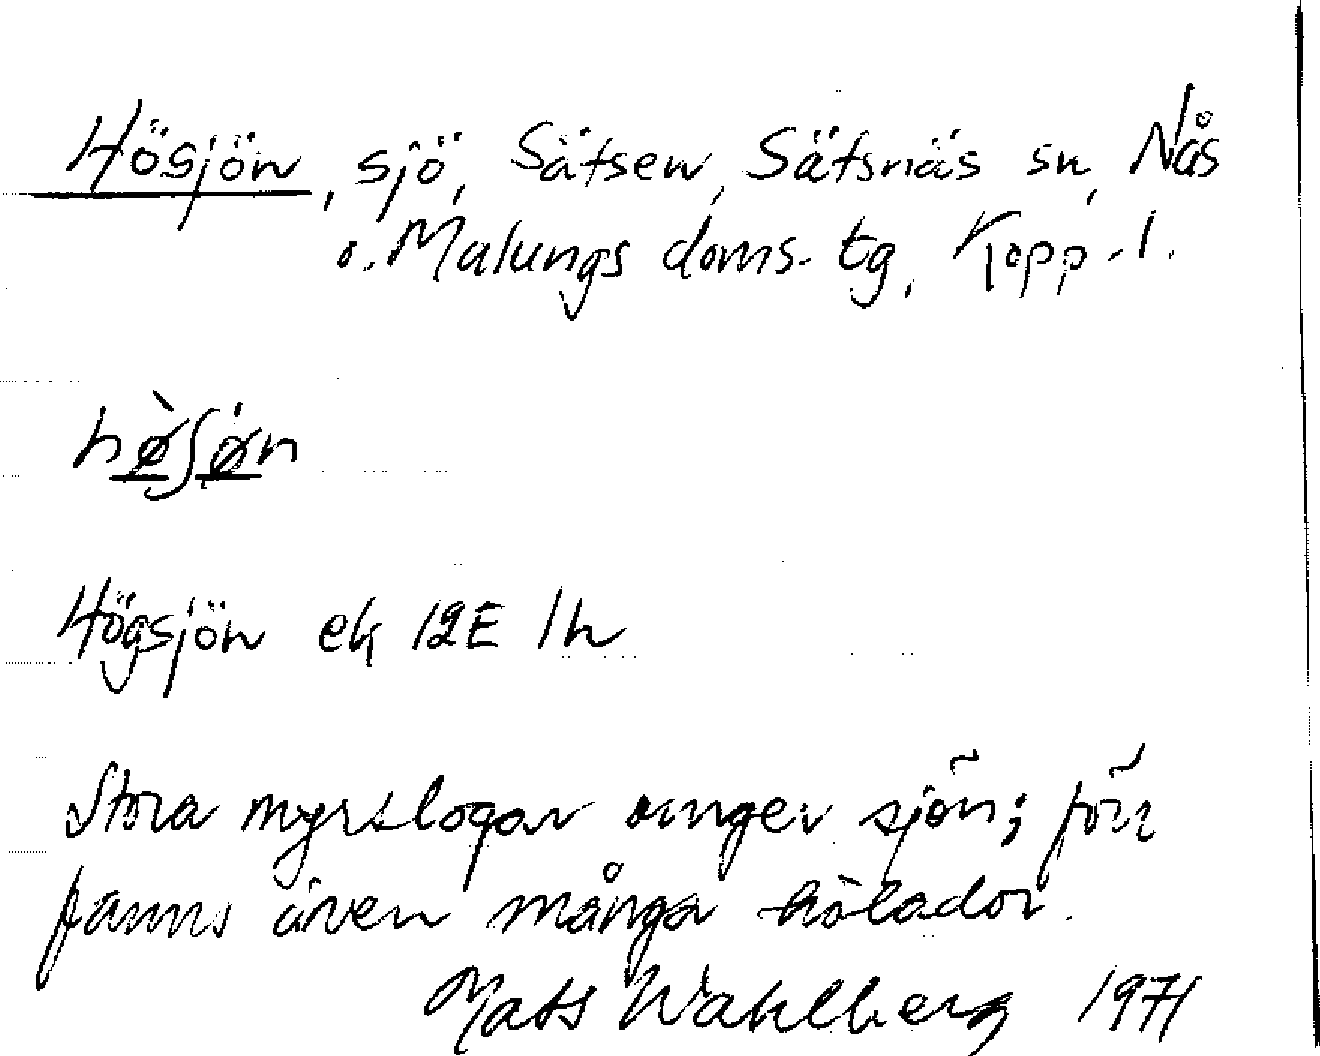 Hösjön, sjö, Sätsen, Sätsnäs sn, Nås
o. Malungs doms. tg, Kopp. l.
hø̀ʃø̀n
Högsjön ek 12E 1h
Stora myrslogar omger sjön; förr
fanns även många hölador.
Mats Wahlberg 1971